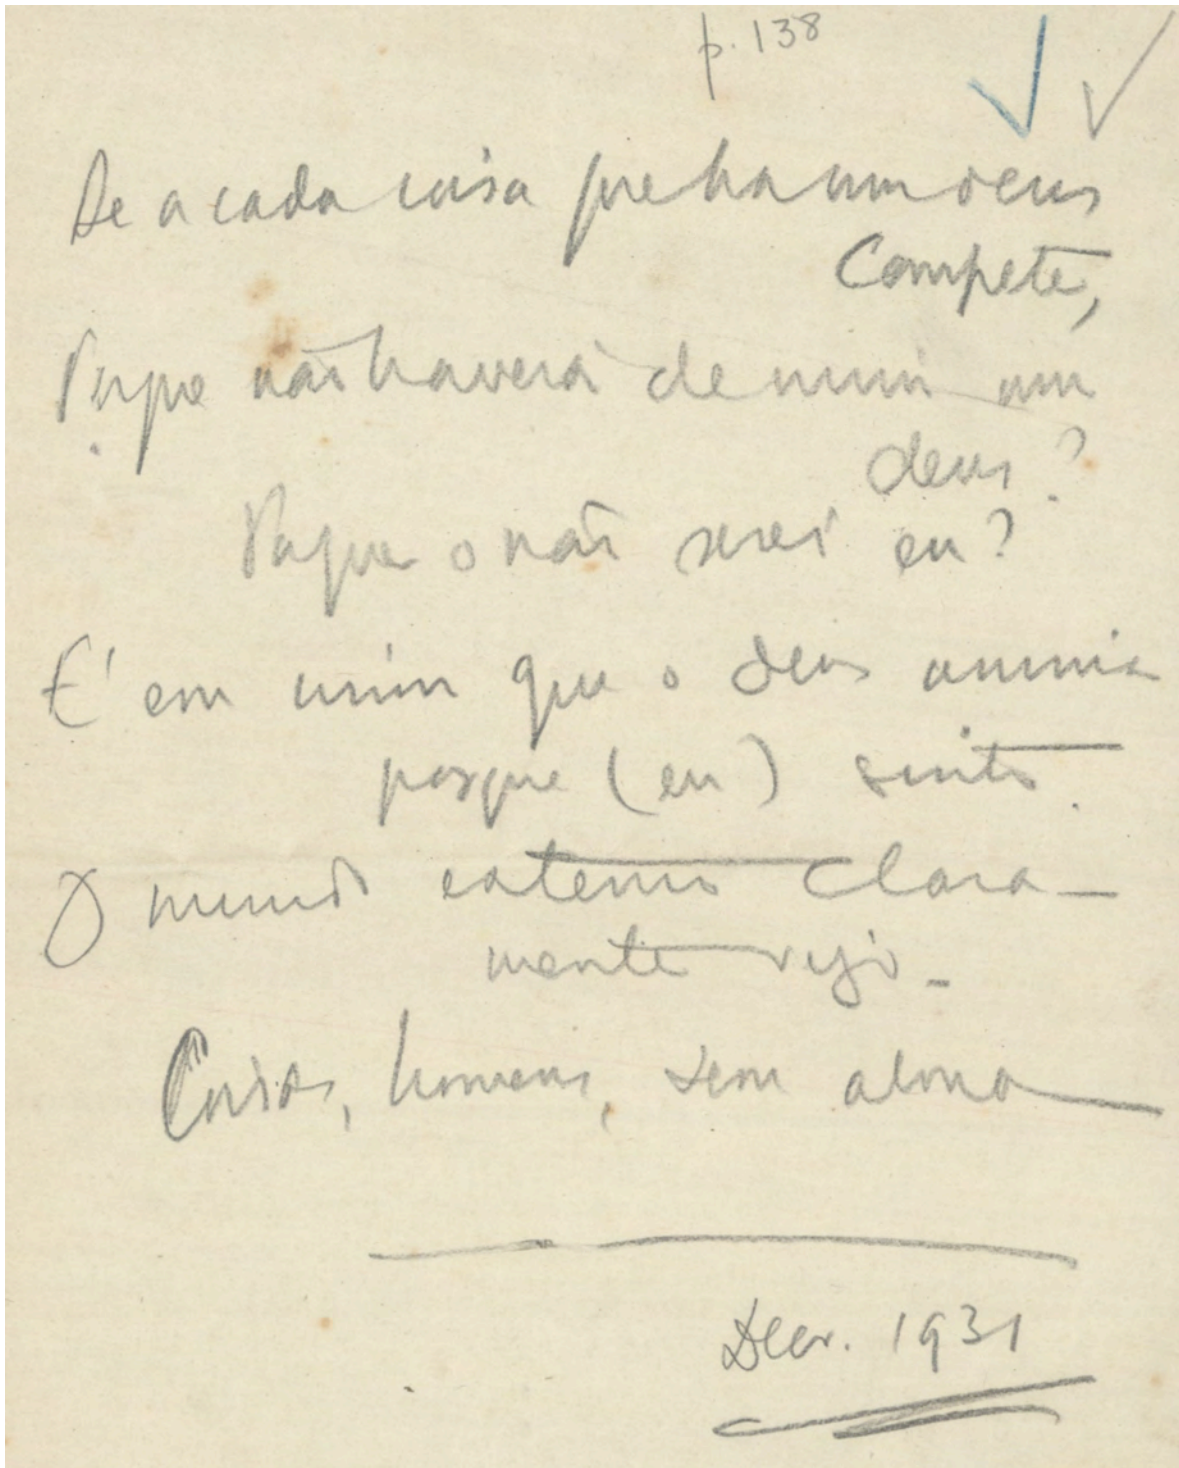 p. 138
Se a cada coisa que ha um deus
Compete,
Porque não haverá de mim um
deus?
Porque o não serei eu?
É em mim que o deus anima
porque (eu) sinto.
O mundo externo clara-
mente vejo -
Coisas, homens, sem alma
Dez. 1931